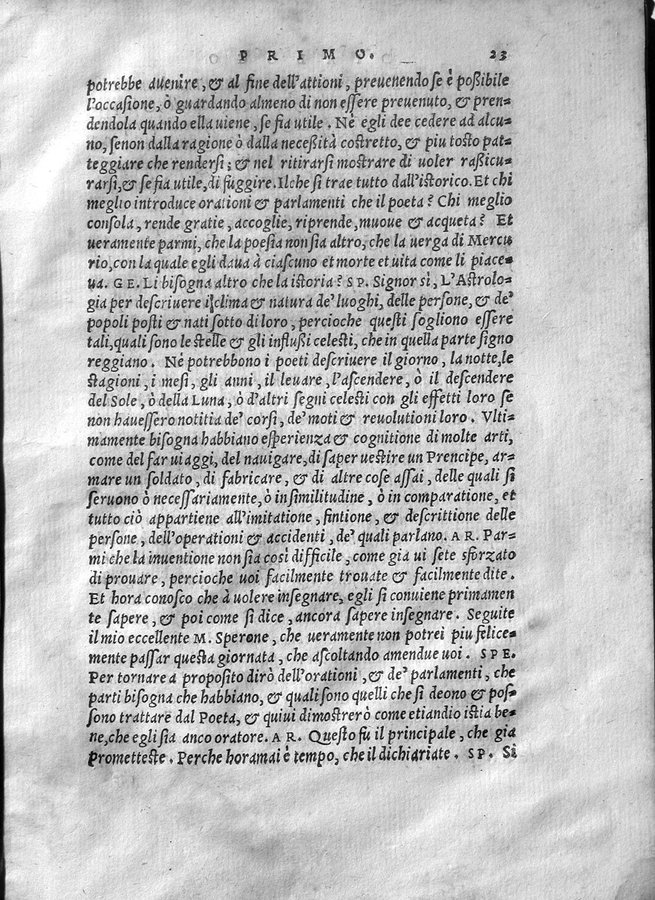 PRIMO. 23
potrebbe avenire, & al fine dell'attioni, preuenendo se è poßibile
l'occasione, ò guardando almeno di non essere preuenuto, & pren=
dendola quando ella uiene, se fia utile. Nè egli dee cedere ad alcu=
no, senon dalla ragione ò dalla neceßità costretto, & piu tosto pat=
teggiare che rendersi; & nel ritirarsi mostrare di uoler raßicu=
rarsi, & se fia utile, di fuggire. Ilche si trae tutto dall'istorico. Et chi
meglio introduce orationi & parlamenti che il poeta? Chi meglio
consola, rende gratie, accoglie, riprende, muoue & acqueta? Et
ueramente parmi, che la poesia non sia altro, che la uerga di Mercu
rio, con la quale egli daua à ciascuno et morte et uita come li piace=
ua. GE. Li bisogna altro che la istoria? SP. Signor sì, L'Astrolo=
gia per descriuere il clima & natura de' luoghi, delle persone, & de'
popoli posti & nati sotto di loro, percioche questi sogliono essere
tali, quali sono le stelle & gli influßi celesti, che in quella parte signo
reggiano. Nè potrebbono i poeti descriuere il giorno, la notte, le
stagioni, i mesi, gli anni, il leuare, l'ascendere, ò il descendere
del Sole, ò della Luna, ò d'altri segni celesti con gli effetti loro se
non hauessero notitia de' corsi, de' moti & reuolutioni loro. Vlti=
mamente bisogna habbiano esperienza & cognitione di molte arti,
come del far uiaggi, del nauigare, di saper uestire un Prencipe, ar=
mare un soldato, di fabricare, & di altre cose assai, delle quali si
seruono ò necessariamente, ò in similitudine, ò in comparatione, et
tutto ciò appartiene all'imitatione, fintione, & descrittione delle
persone, dell'operationi & accidenti, de' quali parlano. AR. Par=
mi che la inuentione non sia così difficile, come gia ui sete sforzato
di prouare, percioche uoi facilmente trouate & facilmente dite.
Et hora conosco che à uolere insegnare, egli si conuiene primamen
te sapere, & poi come si dice, ancora sapere insegnare. Seguite
il mio eccellente M. Sperone, che ueramente non potrei piu felice=
mente passar questa giornata, che ascoltando amendue uoi. SPE.
Per tornare a proposito dirò dell'orationi, & de' parlamenti, che
parti bisogna che habbiano, & quali sono quelli che si deono & pos=
sono trattare dal Poeta, & quiui dimostrerò come etiandio istia be=
ne, che egli sia anco oratore. AR. Questo fu il principale, che gia
prometteste. Perche horamai è tempo, che il dichiariate. SP. Si